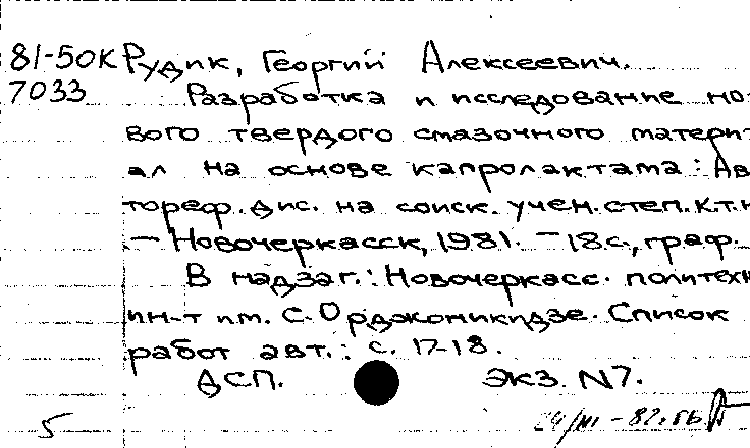 81-50К Рудик, Георгий Алексеевич.
7033 Разработка и исследование но-
вого твердого смазочного матери-
ал на основе капролактама: Ав
тореф. дис. на соиск. учен. степ. к.т.н
— Новочеркасск, 1981. — 18с., граф.
В надзаг.: Новочеркасс. политехн
ин-т им. С. Орджоникидзе. Список
работ авт.: с. 17-18.
ДСП. экз. N7.
5